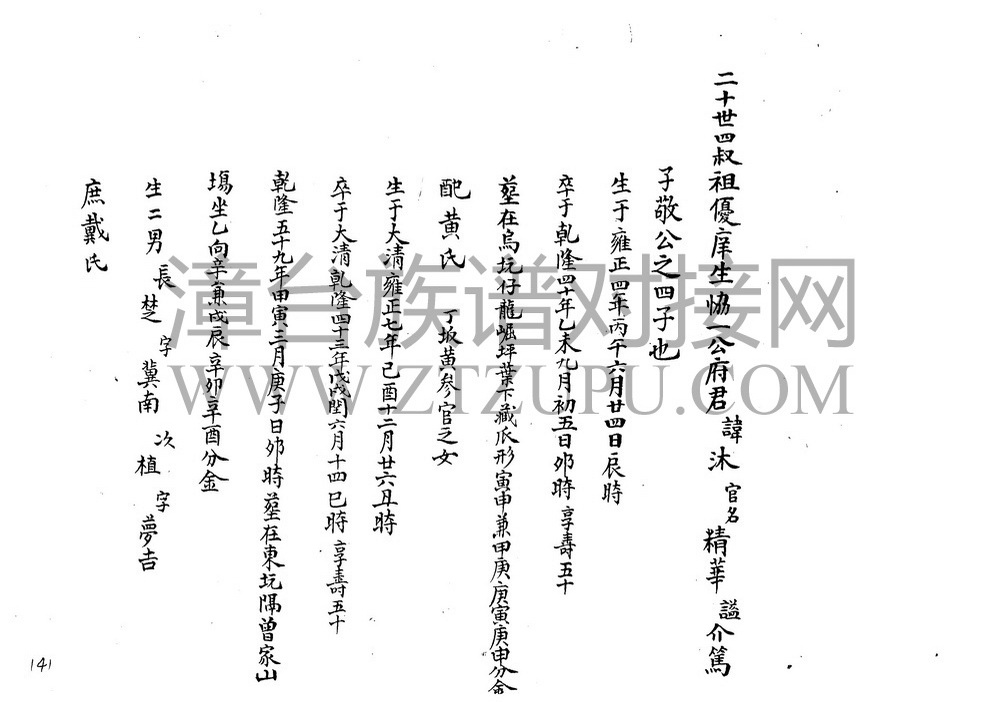 二十世四叔祖優庠生恊一公府君 諱沐 官名精華 謚介篤
子敬公之四子也
生于雍正四年丙午六月廿四日辰時
卒于乾隆四十年乙未九月初五日卯時 享壽五十
葬在烏坑仔龍崛坪葉下藏爪形寅申兼甲庚庚寅庚申分金
配黄氏 丁坂黄参官之女
生于大清雍正七年己酉十二月廿六丑時
卒于大清乾隆四十三年戊戌閏六月十四巳時 享壽五十
乾隆五十九年甲寅三月庚子日卯時葬在東坑隔曾家山
塲坐乙向辛兼戌辰辛卯辛酉分金
生二男 長楚 字冀南 次植 字夢吉
庶戴氏
141
漳台族谱对接网
WWW.ZTZUPU.COM